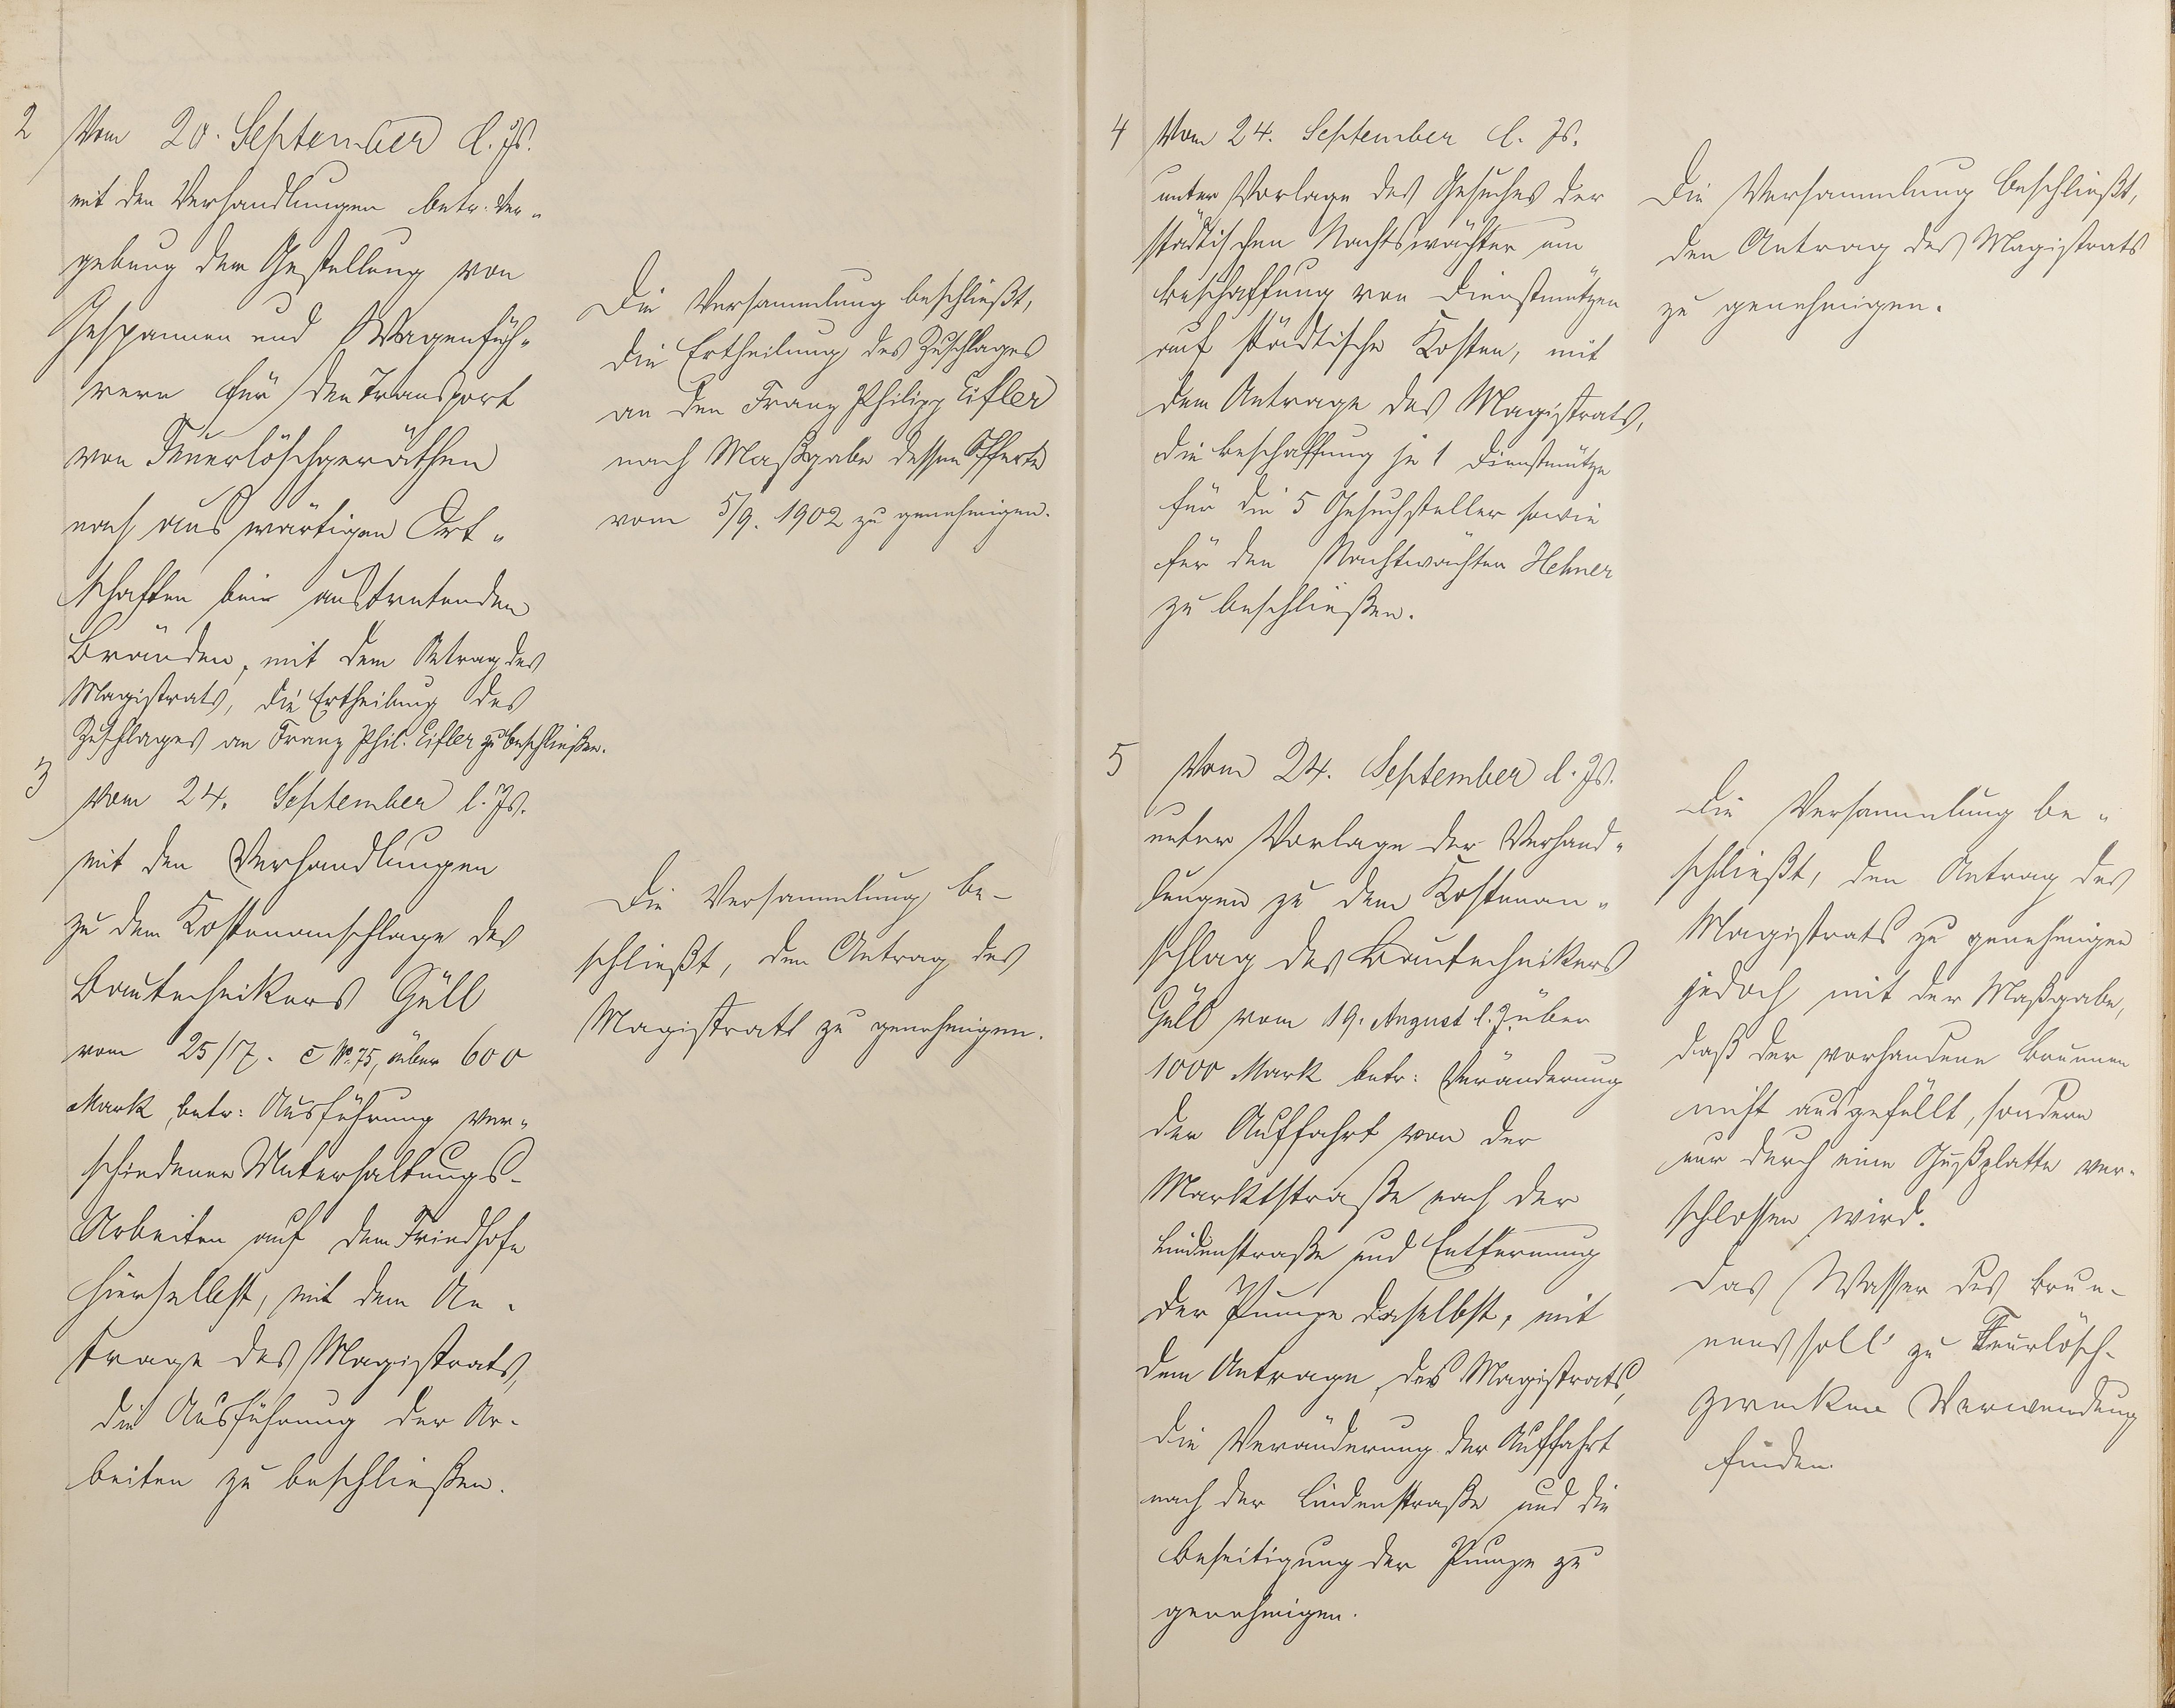 2
Vom 20. September d. Js.
mit den Verhandlungen betr. Ver„
gebung der Gestellung von
Gespannen und Wagenfüh„
rern für den Transport
von Feuerlöschgeräthen
nach auswärtigen Ort„
schaften bei austretenden
Bränden, mit dem Antrag des
Magistrats, die Ertheilung des
Zuschlages an Franz Phil. Eifler zu beschließen.
Die Versammlung beschließt,
die Ertheilung des Zuschlages
an den Franz Philipp Eifler
nach Maßgabe dessen Offerte
vom 5/9. 1902 zu genehmigen.
3
Vom 24. September l. Js.
mit den Verhandlungen
zu dem Kostenanschlage des
Bautechnikers Güll
vom 25/7. c No. 75, über 600
Mark betr: Ausführung ver„
schiedener Unterhaltungs-
Arbeiten auf dem Friedhofe
hierselbst, mit dem An-
trage des Magistrats,
die Ausführung der Ar-
beiten zu beschließen.
Die Versammlung be-
schließt, den Antrag des
Magistrats zu genehmigen.
4
Vom 24. September l. Js.
unter Vorlage des Gesuches der
städtischen Nachtswächter um
Beschaffung von Dienstmützen
auf städtische Kosten, mit
dem Antrage des Magistrats,
die Beschaffung je 1 Dienstmütze
für die 5 Gesuchsteller sowie
für den Nachtwächter Hehner
zu beschließen.
Die Versammlung beschließt,
den Antrag des Magistrats
zu genehmigen.
5
Vom 24. September l. Js.
unter Vorlage der Verhand„
lungen zu dem Kostenan„
schlag des Bautechnikers
Güll vom 19. August l. J. über
1000 Mark betr: Veränderung
der Auffahrt von der
Marktstraße nach der
Lindenstraße und Entfernung
der Pumpe daselbst, mit
dem Antrage des Magistrats,
die Veränderung der Auffahrt
nach der Lindenstraße und die
Beseitigung der Pumpe zu
genehmigen.
Die Versammlung be„
schließt, den Antrag des
Magistrats zu genehmigen
jedoch mit der Maßgabe,
daß der vorhandene Brunnen
nicht ausgefüllt, sondern
nur durch eine Gußplatte ver-
schlossen wird.
Das Wasser des Brun-
nens soll zu Feurlösch-
zwecken Verwendung
finden.